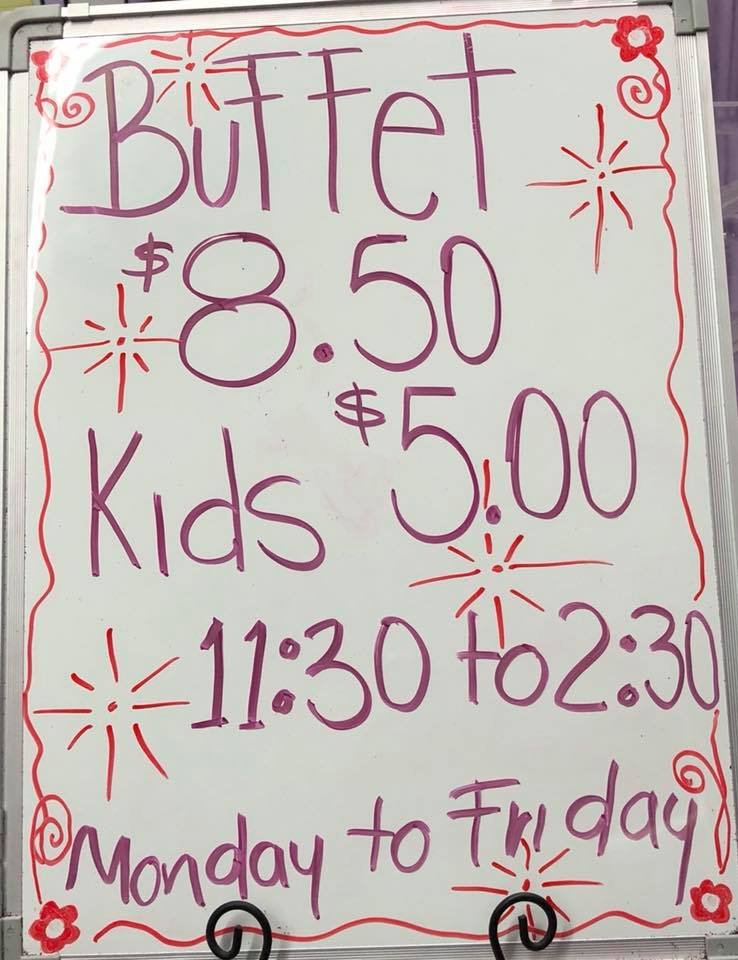 Buffet
$8.50
Kids $5.00
11:30 to 2:30
Monday to Friday